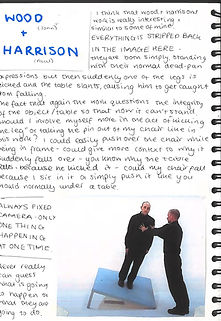 WOOD
(JOHN)
+
HARRISON
(PAUL)
I think that wood + harrisons
work is really interesting +
similar to some of mine.
EVERYTHING IS STRIPPED BACK
IN THE IMAGE HERE -
they are both simply standing
with their normal dead-pan
expressions. but then suddenly one of the legs is
kicked and the table slants, causing him to get caught
from falling.
The fact that again the work questions the integrity
of the object/table so that now it can't stand.
should I involve myself more in the act of kicking
the leg or taking the pin out of my chair like in
this work? I could easily push over one chair while
being in frame - could give more context to why it
suddenly falls over - you know why the table
falls - because he kicked it - could my chair fall
because I sit in it or simply push it like you
would normally under a table.
ALWAYS FIXED
CAMERA - ONLY
ONE THING
HAPPENING
AT ONE TIME
never really
can guess
what is going
to happen or
what they are
going to do.